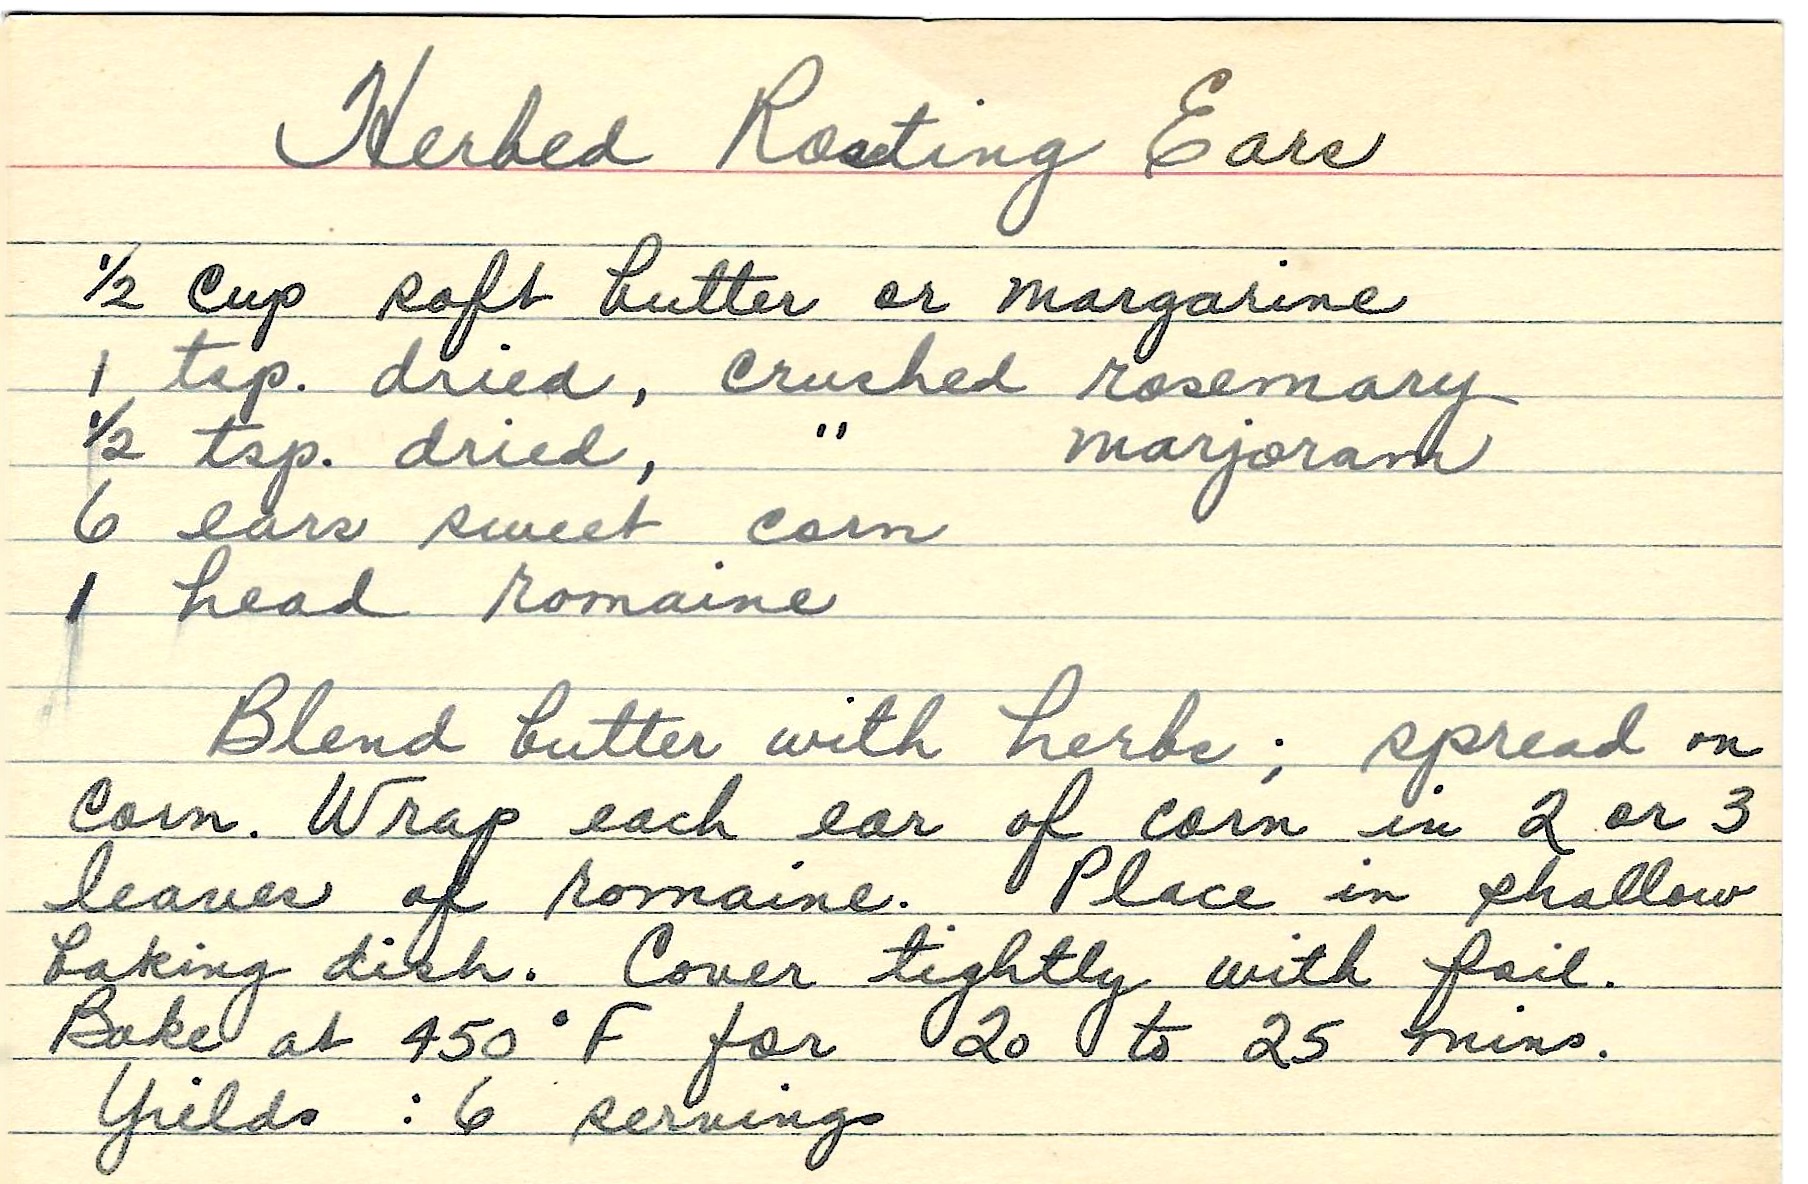 Herbed Roasting Ears
1/2 cup soft butter or margarine
1 tsp. dried, crushed rosemary
1/2 tsp. dried, " marjoram
6 ears sweet corn
1 head romaine
Blend butter with herbs; spread on
corn. Wrap each ear of corn in 2 or 3
leaves of romaine. Place in shallow
baking dish. Cover tightly with foil.
Bake at 450°F for 20 to 25 mins.
Yields : 6 servings